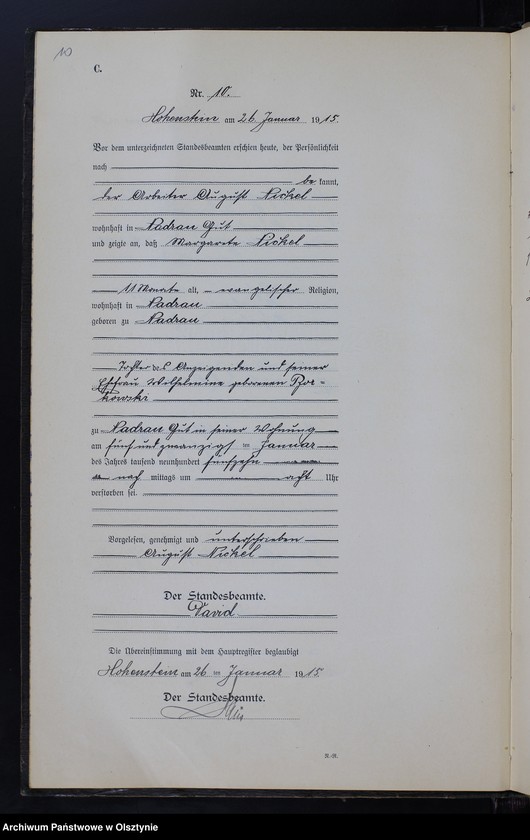 10
C.
Nr. 10.
Hohenstein am 26 Januar 1915.
Vor dem unterzeichneten Standesbeamten erschien heute, der Persönlichkeit
nach
be kannt,
der Arbeiter August Nickel
wohnhaft in Nadrau Gut
und zeigte an, daß Margarete Nickel
11 Monate alt, evangelischer Religion,
wohnhaft in Nadrau
geboren zu Nadrau
Tochter des Anzeigenden und seiner
Ehefrau Wilhelmine geborenen
kowski
zu Nadrau Gut in seiner Wohnung
am fünf und zwanzigst en Januar
des Jahres tausend neunhundert fünfzehn
nach mittags um acht Uhr
verstorben sei.
Vorgelesen, genehmigt und unterschrieben
August Nickel
Der Standesbeamte.
David
Die Übereinstimmung mit dem Hauptregister beglaubigt
Hohenstein am 26 ten Januar 1915.
Der Standesbeamte.
Archiwum Państwowe w Olsztynie